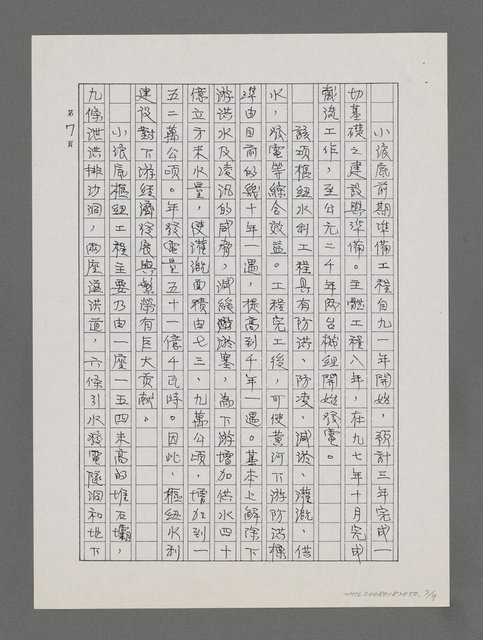 小浪底前期準備工程自九一年開始，預計三年完成一
切基礎之建設與準備。主體工程八年，在九七年十月完成
截流工作，至公元二千年兩台機組開始發電。
該項樞紐水利工程具有防洪、防凌、減淤、灌溉、供
水，發電等綜合效益。工程完工後，可使黃河下游防洪標
準由目前的幾十年一遇，提高到千年一遇。基本上解除下
游洪水及凌汛的威脅，減緩淤塞，為下游增加供水四十
億立方米水量，使灌溉面積由七三．九萬公頃，增加到一
五二萬公頃。年發電量五十一億4瓦時。因此，樞紐水利
建設對下游經濟發展與繁榮有巨大貢獻。
小浪底樞紐工程主要乃由一座一五四米高的堆石壩，
九條泄洪排沙洞，兩座溢洪道，六條引水發電隧洞和地下
第7頁
NMTL20080182050, 7/9